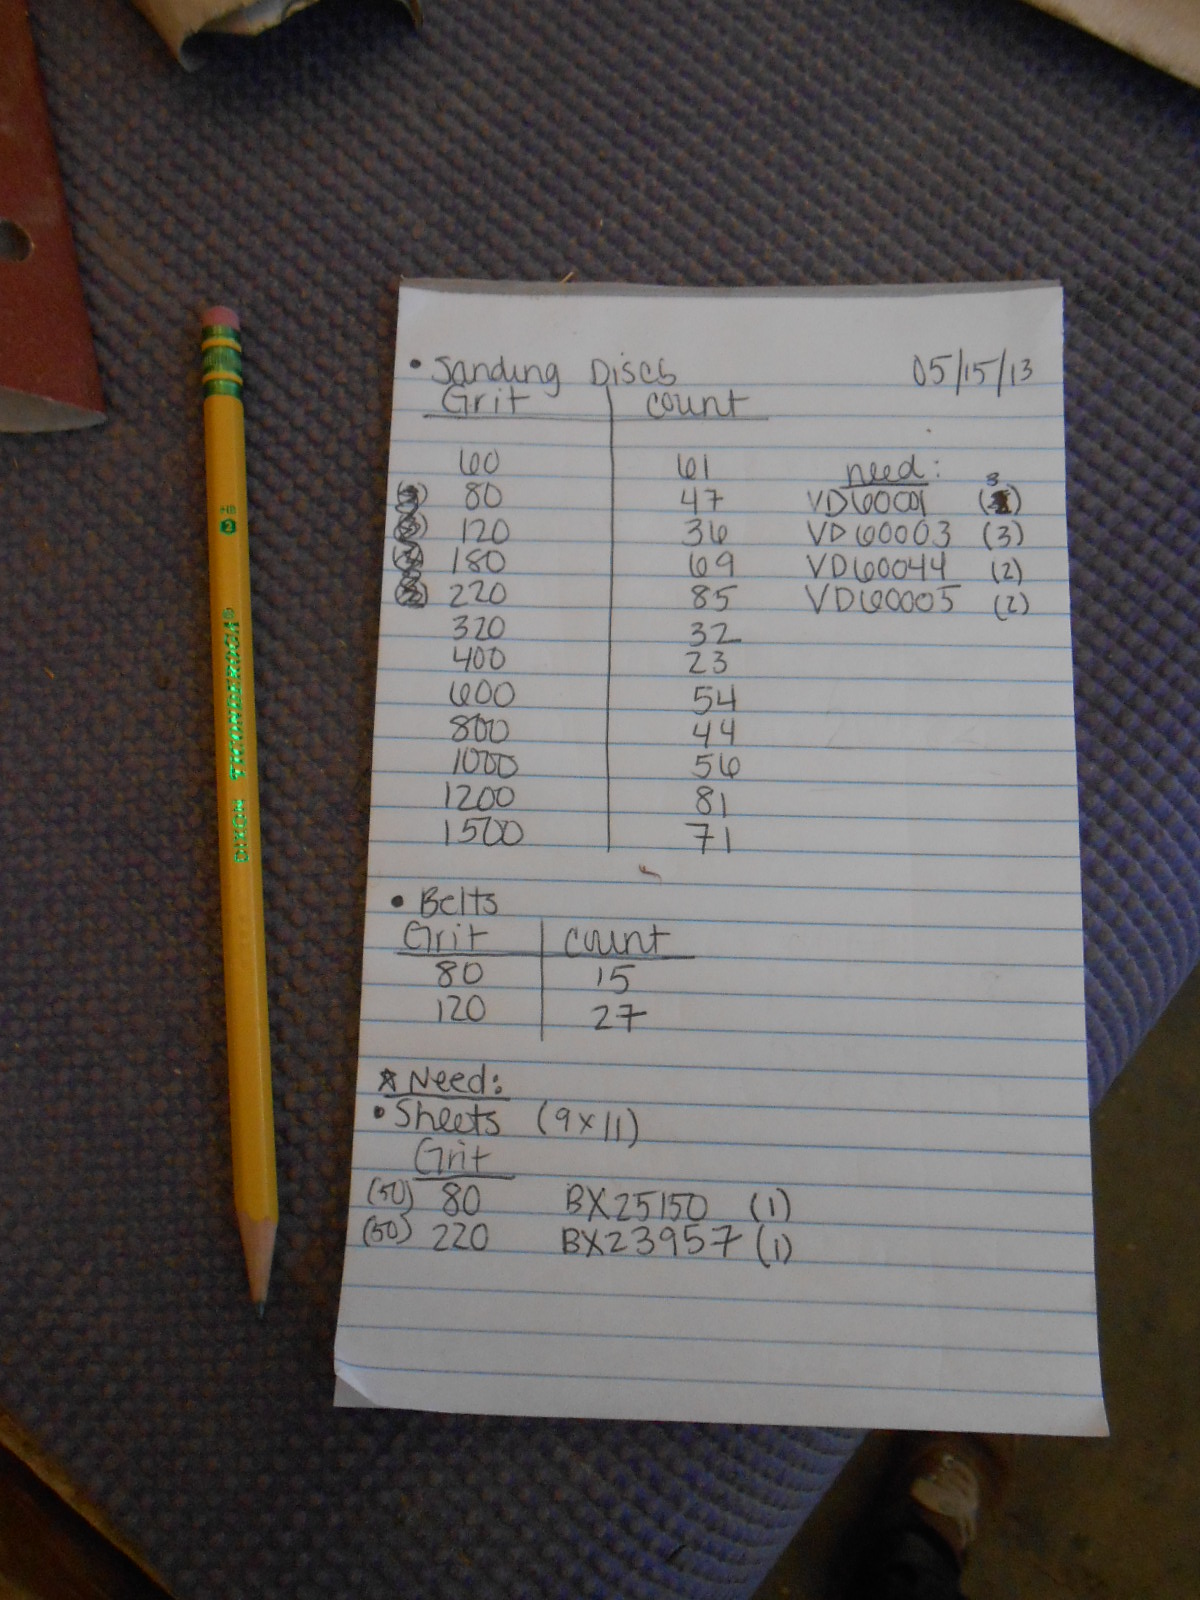 • Sanding Discs 05/15/13
Grit count
60 61 need:
80 47 VD60001 (3)
120 36 VD60003 (3)
180 69 VD60044 (2)
220 85 VD60005 (2)
320 32
400 23
600 54
800 44
1000 56
1200 81
1500 71
• Belts
Grit count
80 15
120 27
☆ Need:
• Sheets (9x11)
Grit
(50) 80 BX25150 (1)
(50) 220 BX23957 (1)
DIXON TICONDEROGA®
HB
2